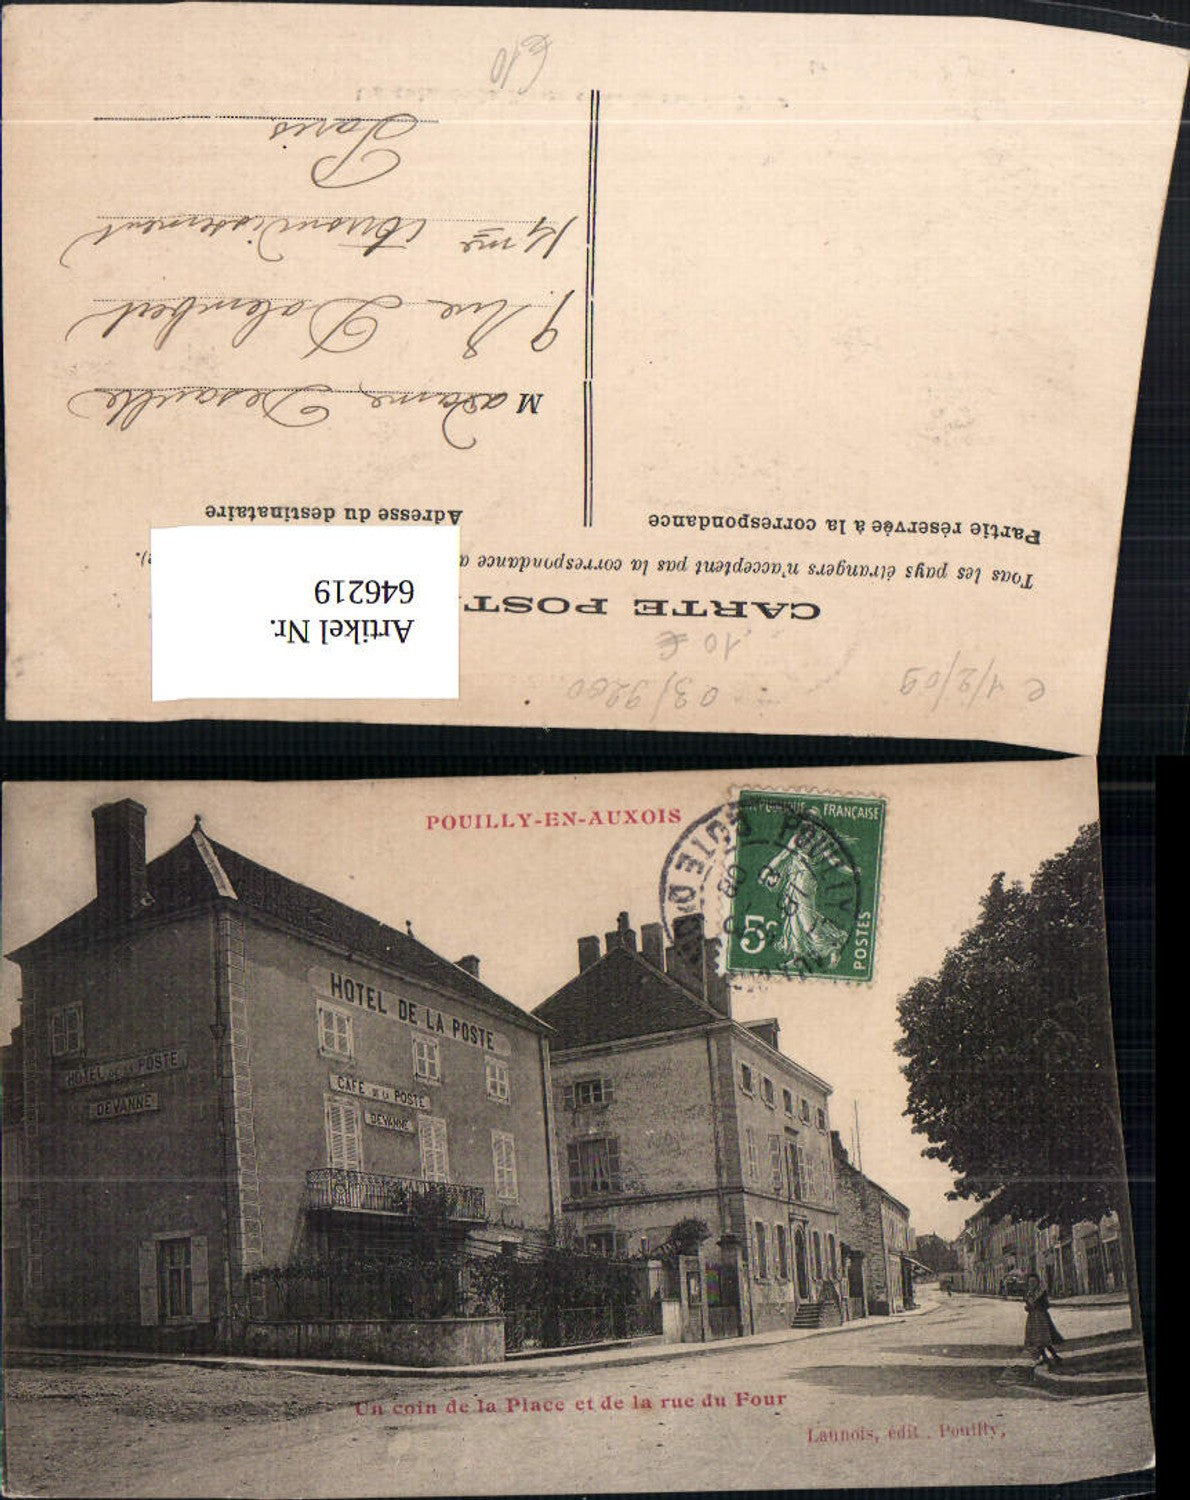 CARTE POST
Tous les pays étrangers n'acceptent pas la correspondance a
e).
Partie réservée à la correspondance
Adresse du destinataire
Madame Desaulle
9. Rue Dalembert
14me Arrondissement
Paris
Artikel Nr.
646219
10 €
€10
03/9200
POUILLY-EN-AUXOIS
RÉPUBLIQUE FRANÇAISE
5c
POSTES
POUILLY
COTE D'OR
HOTEL DE LA POSTE
CAFÉ DE LA POSTE
DEVANNE
HOTEL DE LA POSTE
DEVANNE
Un coin de la Place et de la rue du Four
Launois, édit. Pouilly,